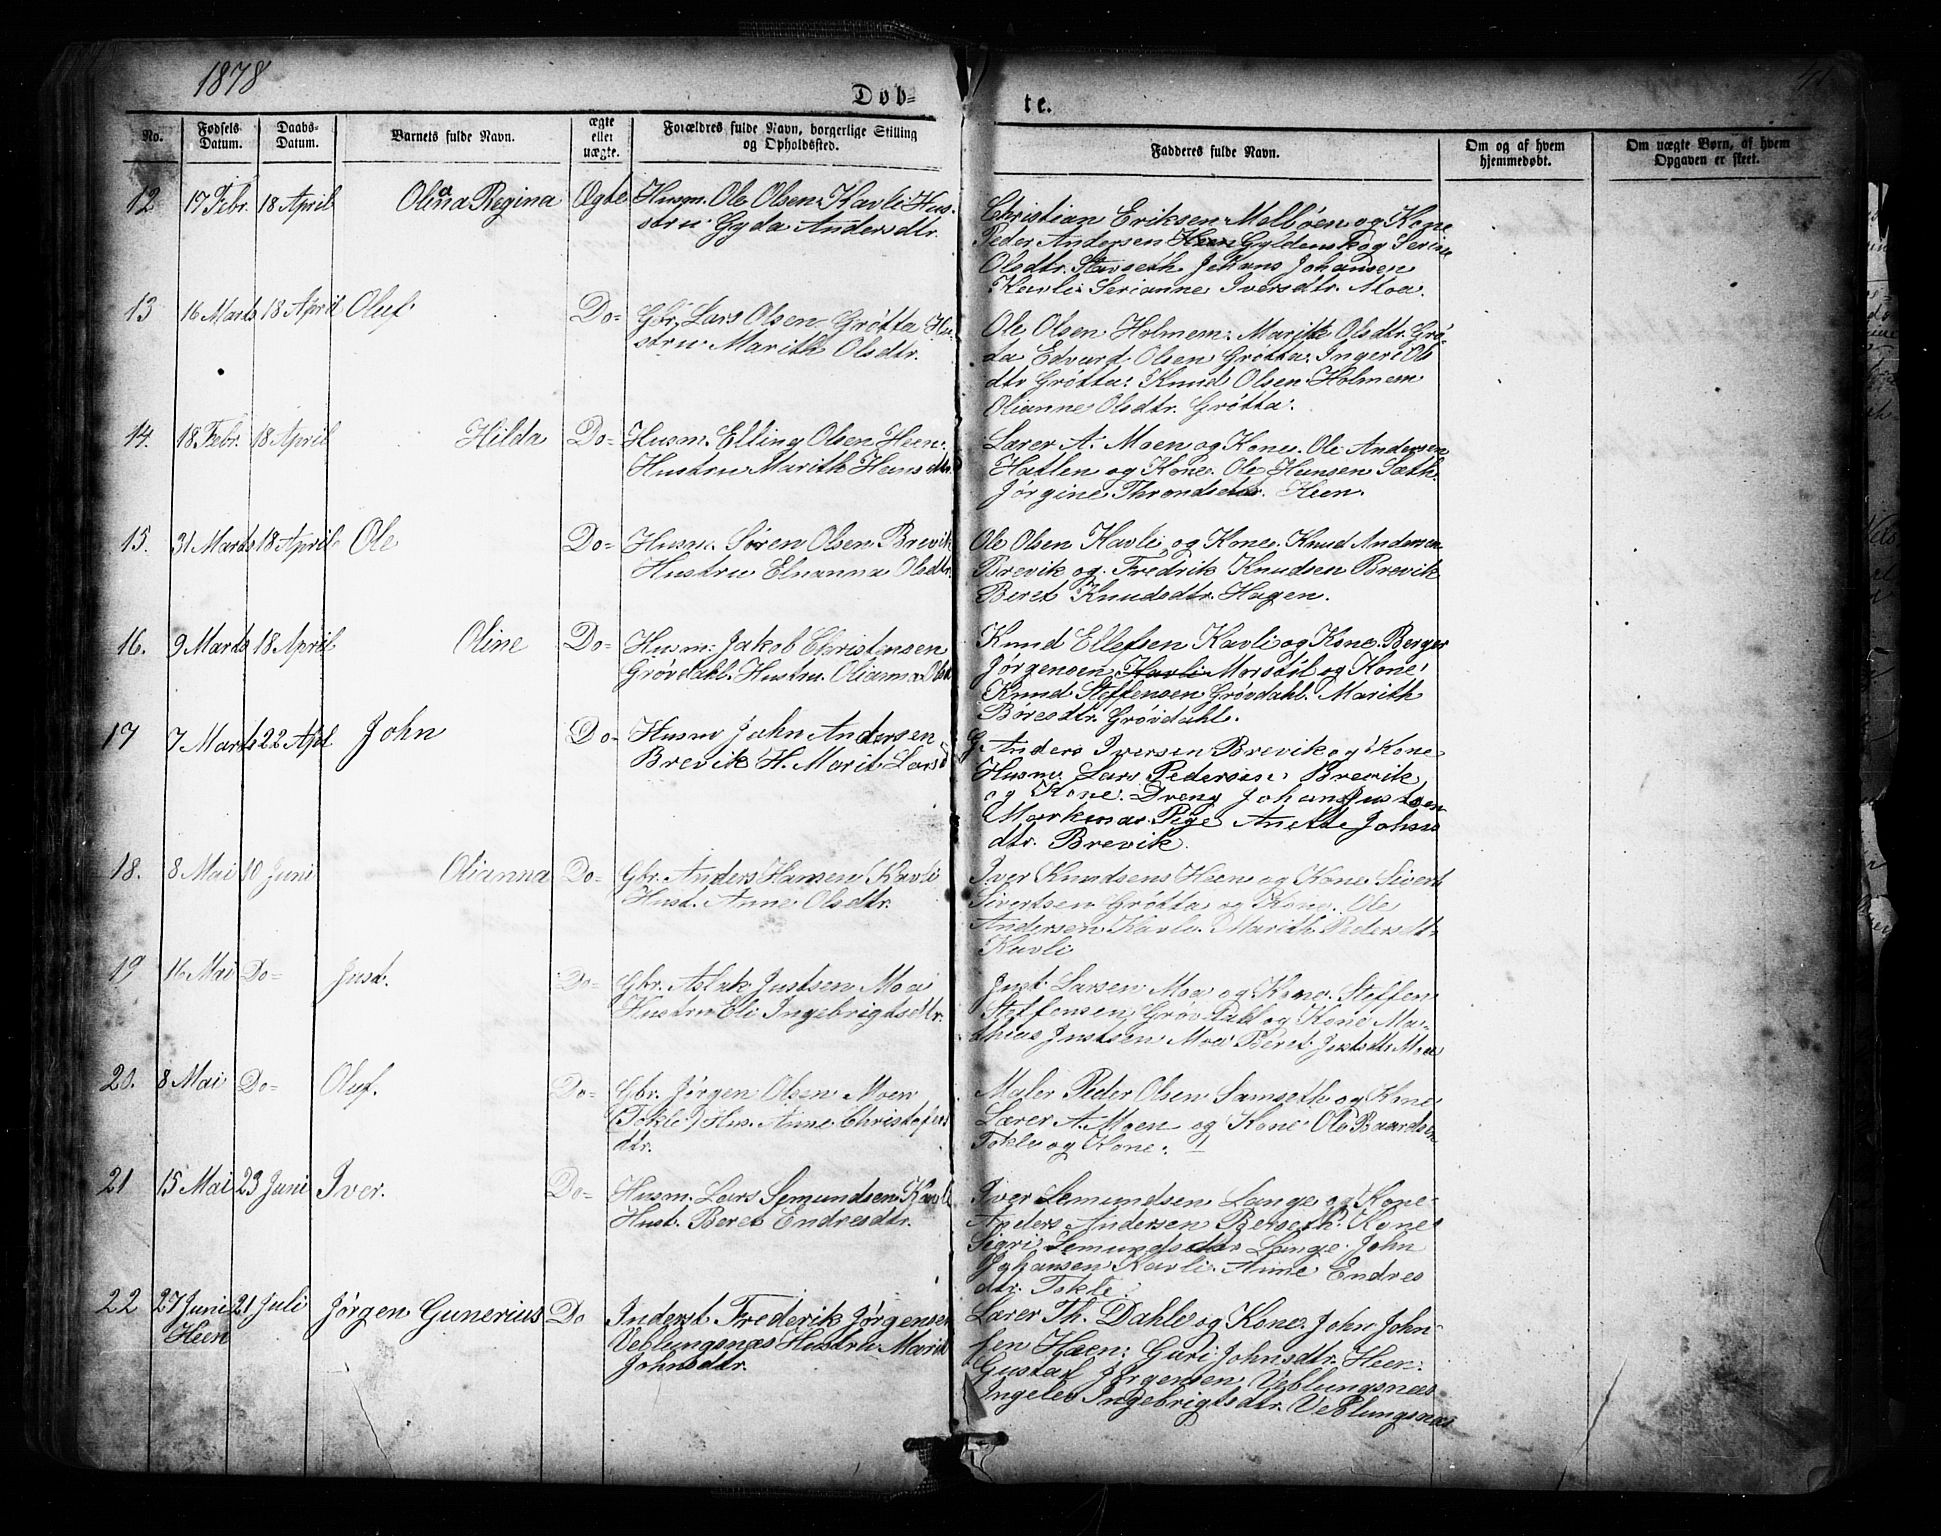 1878
Døb-
te.
No.
Fødsels Datum.
Daabs-Datum.
Barnets fulde Navn.
ægte eller uægte.
Forældres fulde Navn, borgerlige Stilling og Opholdssted.
Fadderes fulde Navn.
Om og af hvem hjemmedøbt.
Om uægte Børn, af hvem Opgaven er skeet.
12 17 Febr. 18 April Oliana Regina Ægte Husm. Ole Olsen Kavli Hus-
stru Gyda Andersdtr.
Christian Eriksen Melbøen og Kone
Peder Andersen Gyldenskog Serine
Olsdtr. Stavseth Johans Johansen
Kavli Serianne Iversdtr. Moa.
13 16 Marts 18 April Oluf. Do- Gbr. Lars Olsen Grøtta Hu-
stru Marith Olsdtr.
Ole Olsen Holmem: Marith Olsdtr. Grø-
da Edvard Olsen Grøtta. Inger Ols
dtr Grøtta: Knud Olsen Holmem
Olianne Olsdtr. Grøtta.
14. 18 Febr. 18 April Hilda Do- Husm. Elling Olsen Heen.
Hustru Marith Hansdtr
Lærer A. Moen og Kone. Ole Andersen
Hatlen og Kone. Ole Hansen Sæth.
Jørgine Throndsdtr. Heen.
15. 31 Marts 18 April Ole Do- Husm. Søren Olsen Brevik
Hustru Elnanna Olsdtr.
Ole Olsen Kavli og Kone. Knud Andersen
Brevik og Fredrik Knudsen Brevik
Beret Knudsdtr. Hagen.
16. 9 Marts 18 April Oline Do- Husm: Jakob Christensen
Grøvdahl. Hustru. Olianna Olsd
Knud Ellefsen Kavli og Kone. Berger
Jørgensen Kavli Morstøl og Kone
Knud Steffensen Grøvdahl. Marith
Børesdtr. Grøvdahl.
17 7 Marts 22 Apl John Do- Husm John Andersen
Brevik H. Marit Larsd
G Anders Iversen Brevik og Kone
Husm. Lars Pedersen Brevik
og Kone. Dreng Johan Justsen
Morkenas. Pige Anette Johns
dtr. Brevik.
18. 8 Mai 10 Juni Olianna Do- Gbr. Anders Hansen Kavli
Hust. Anne Olsdtr.
Iver Knudsens Heen og Kone Sivert
Sivertsen Grøtta og Kone. Ole
Andersen Kavli. Marith Pedersdtr
Kavli
19 16 Mai Do- Just. Do- Gbr. Aslak Justsen Moa
Hustru Eli Ingebrigtsdtr.
Just Larsen Moa og Kone. Steffen
Steffensen Grøvdahl og Kone Ma-
thias Justsen Moa Beret Justsdtr Moa
20. 8 Mai Do- Oluf. Do- Gbr Jørgen Olsen Moen
(Tokle) Hus. Anne Christofers
dtr.
Maler Peder Olsen Samseth og Kone
Lærer A. Moen og Kone Ole Baardsen
Tokle og Kone.
21 15 Mai 23 Juni Iver. Do- Husm. Lars Semundsen Kavli
Hust. Beret Endresdtr.
Iver Semundsen Lange og Kone
Anders Andersen Berseth. Kone
Sigri Semundsdtr Lange. John
Johansen Kavli. Anne Endres
dtr. Tokle.
22 27 Juni 21 Juli Jørgen Gunerius Do Inderst Frederik Jørgensen
Heen
Veblungsnæs Hustru Marit
Johnsdtr.
Lærer Th. Dahle og Kone. John John-
sen Hæen: Guri Johnsdtr. Heen.
Gustaf Jørgensen Veblungsnæs
Ingelev Ingebrigtsdtr. Veblungsnæs